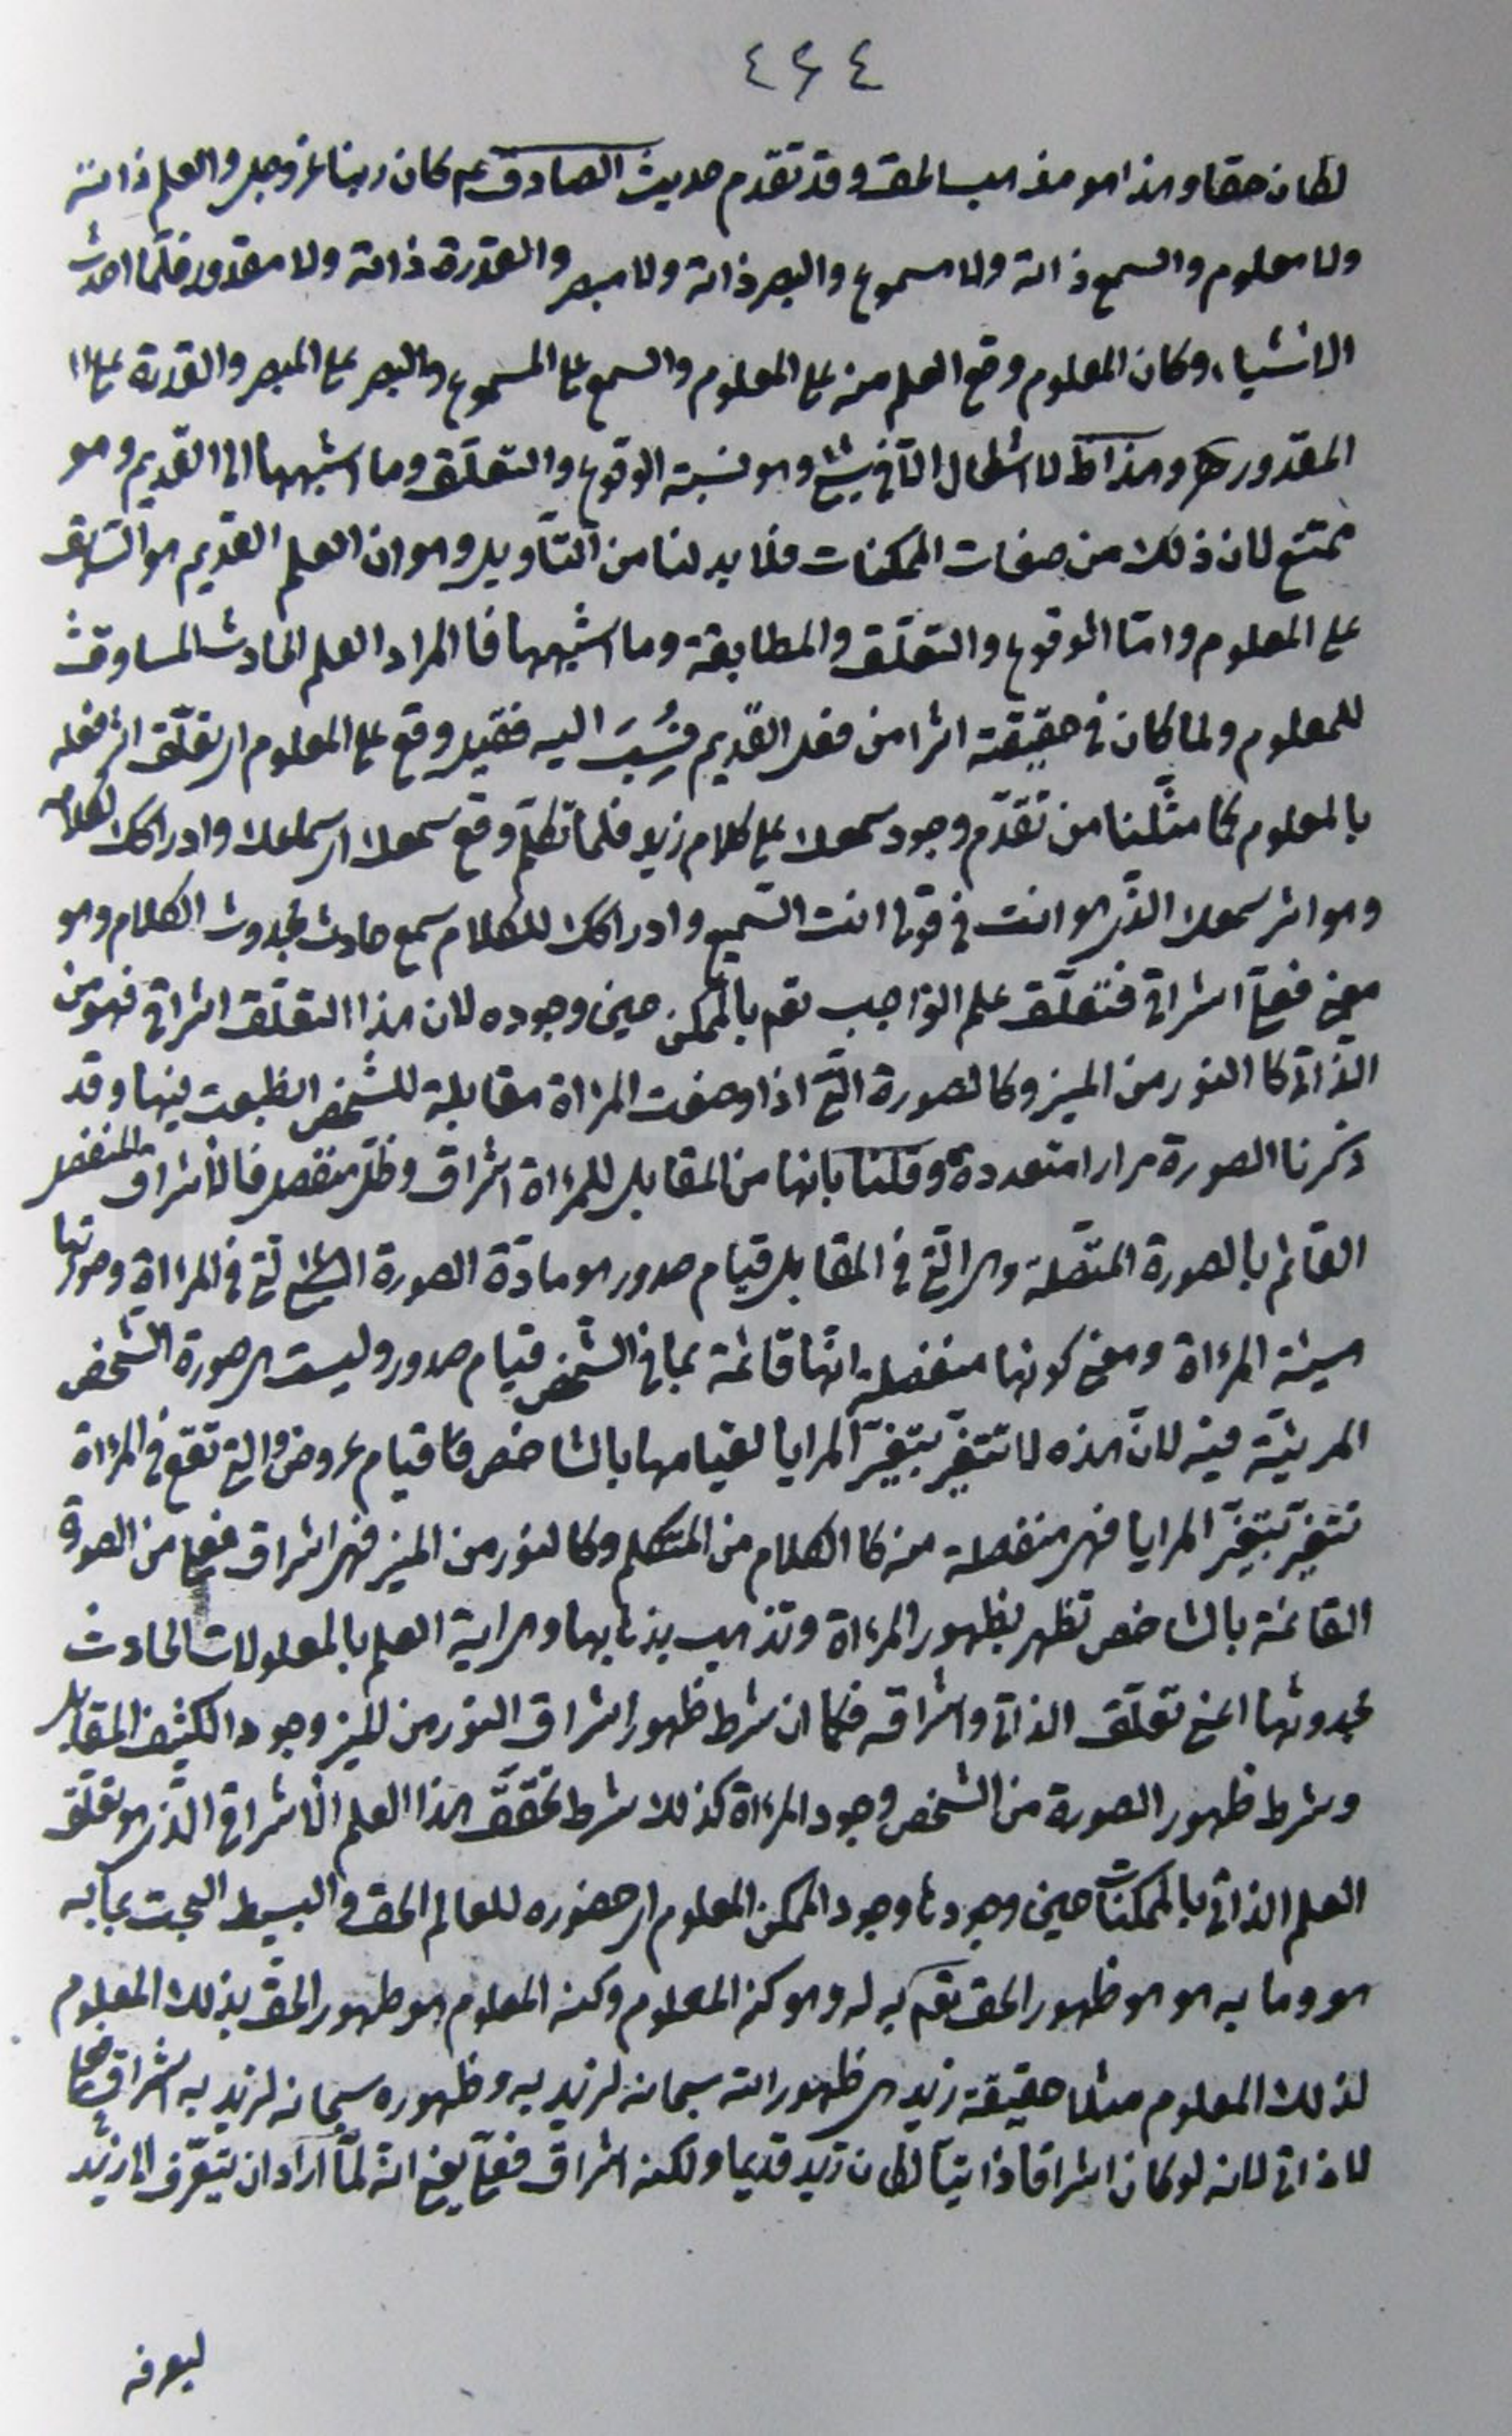 ٤٢٤
لكان حقا وهذا هو مذهب الحق وقد تقدم حديث الصادق ع كان ربنا عز وجل والعلم ذاته
ولا معلوم والسمع ذاته ولا مسموع والبصر ذاته ولا مبصر والقدرة ذاته ولا مقدور فلمّا احدث
الاشياء وكان المعلوم وقع العلم منه على المعلوم والسمع على المسموع والبصر على المبصر والقدرة على
المقدور وهذا لا اشكال الّا في شئ وهو نسبة الوقوع والتعلّق وما اشبهها الى القديم وهو
ممتنع لان ذلك من صفات الممكنات فلا بد لنا من التّأويل وهو ان العلم القديم هو السّابق
على المعلوم وامّا الوقوع والتعلّق والمطابقة وما اشبهها فالمراد العلم الحادث المساوق
للمعلوم ولما كان في حقيقته اثرا من فعل القديم فنُسِبَ اليه فقيل وقع على المعلوم اى تعلّق اثر فعله
بالمعلوم كما مثّلنا من تقدّم وجود سمعك على كلام زيد فلما تكلّم وقع سمعك اى سماعك وادراكك لكلامه
وهو اثر سمعك الذى هو انت في قولنا انت السّميع وادراكك للكلام سمع حادث بحدوث الكلام وهو
معنى فعلىّ اشراقى فتعلّق علم الواجب تعم بالممكن حين وجوده لان هذا التعلّق اشراقى فهو من
الذّاتى كا النور من المنير وكالصورة التى اذا وضعت المرآة مقابلة للشخص انطبعت فيها وقد
ذكرنا الصورة مرارا متعددة وقلنا بانها من المقابل للمرءاة اشراق وظل منفصل فالاشراق المنفصل
القائم بالصورة المتّصلة وهى الّتى في المقابل قيام صدور هو مادّة الصورة التى في المرءاة وصورتها
هيئة المرءاة ومعنى كونها منفصلة انها قائمة بما في الشّخص قيام صدور وليست هى صورة الشّخص
المرئيّة فيه لانّ هذه لا تتغيّر بتغيّر المرايا لقيامها بالشاخص قيام عروض والتى تقع في المرءاة
تتغيّر بتغيّر المرايا فهى منفصلة منه كا الكلام من المتكلم وكالنور من المنير فهى اشراق فعلى من الصورة
القائمة بالشاخص تظهر بظهور المرءاة وتذهب بذهابها وهى اية العلم بالمعلولات الحادث
بحدوثها اعنى تعلّق الذاتى واشراقه فكما ان شرط ظهور اشراق النور من المنير وجود الكثيف المقابل
وشرط ظهور الصورة من الشخص وجود المرءاة كذلك شرط تحقّق هذا العلم الاشراقى الذى هو تعلّق
العلم الذاتى بالممكنات حين وجودها وجود الممكن المعلوم اى حضوره للعالم الحق والبسيط البحت بما به
هو وما به هو هو ظهور الحق تعم به له وهو كنه المعلوم وكنه المعلوم هو ظهور الحق بذلك المعلوم
لذلك المعلوم مثلا حقيقة زيد هى ظهور الله سبحانه لزيد به وظهوره سبحانه لزيد به اشراق فعلى
لا ذاتى لانه لو كان اشراقا ذاتيّا لكان زيد قديما ولكنه اشراق فعلىّ يعنى انه لمّا اراد ان يتعرّف الى زيد
ليعرفه